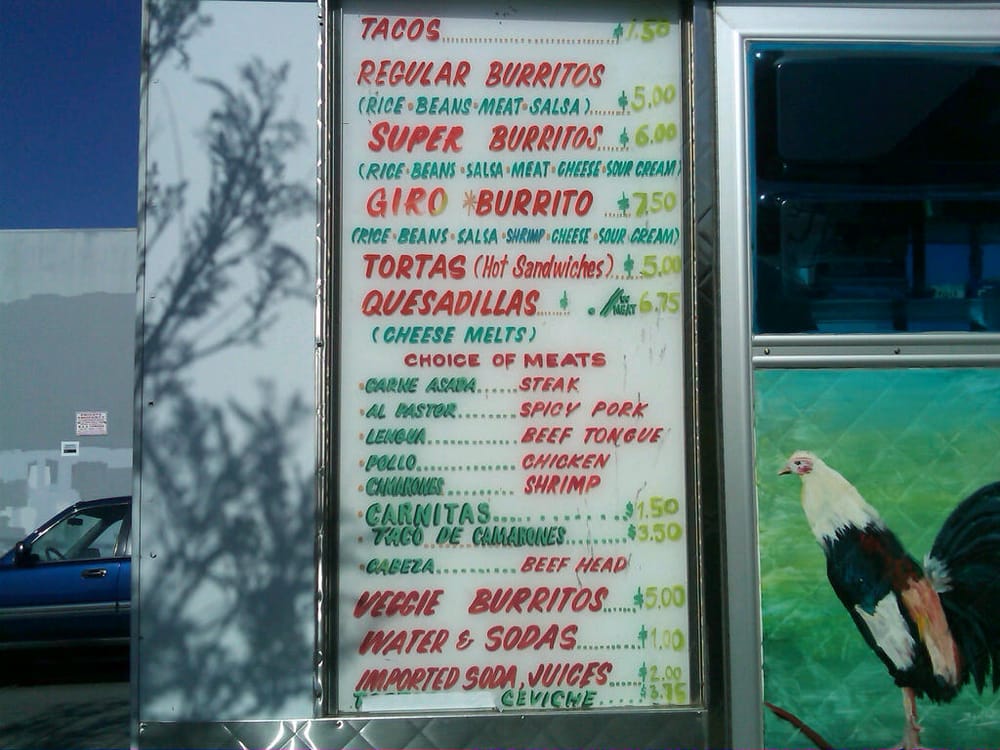 TACOS $1.50
REGULAR BURRITOS
(RICE • BEANS • MEAT • SALSA) $5.00
SUPER BURRITOS $6.00
(RICE • BEANS • SALSA • MEAT • CHEESE • SOUR CREAM)
GIRO *BURRITO $7.50
(RICE • BEANS • SALSA • SHRIMP • CHEESE • SOUR CREAM)
TORTAS (Hot Sandwiches) $5.00
QUESADILLAS $ MEAT 6.75
(CHEESE MELTS)
CHOICE OF MEATS
• CARNE ASADA STEAK
• AL PASTOR SPICY PORK
• LENGUA BEEF TONGUE
• POLLO CHICKEN
• CAMARONES SHRIMP
• CARNITAS $1.50
• TACO DE CAMARONES $3.50
• CABEZA BEEF HEAD
VEGGIE BURRITOS $5.00
WATER & SODAS $1.00
IMPORTED SODA, JUICES $2.00
CEVICHE $3.75